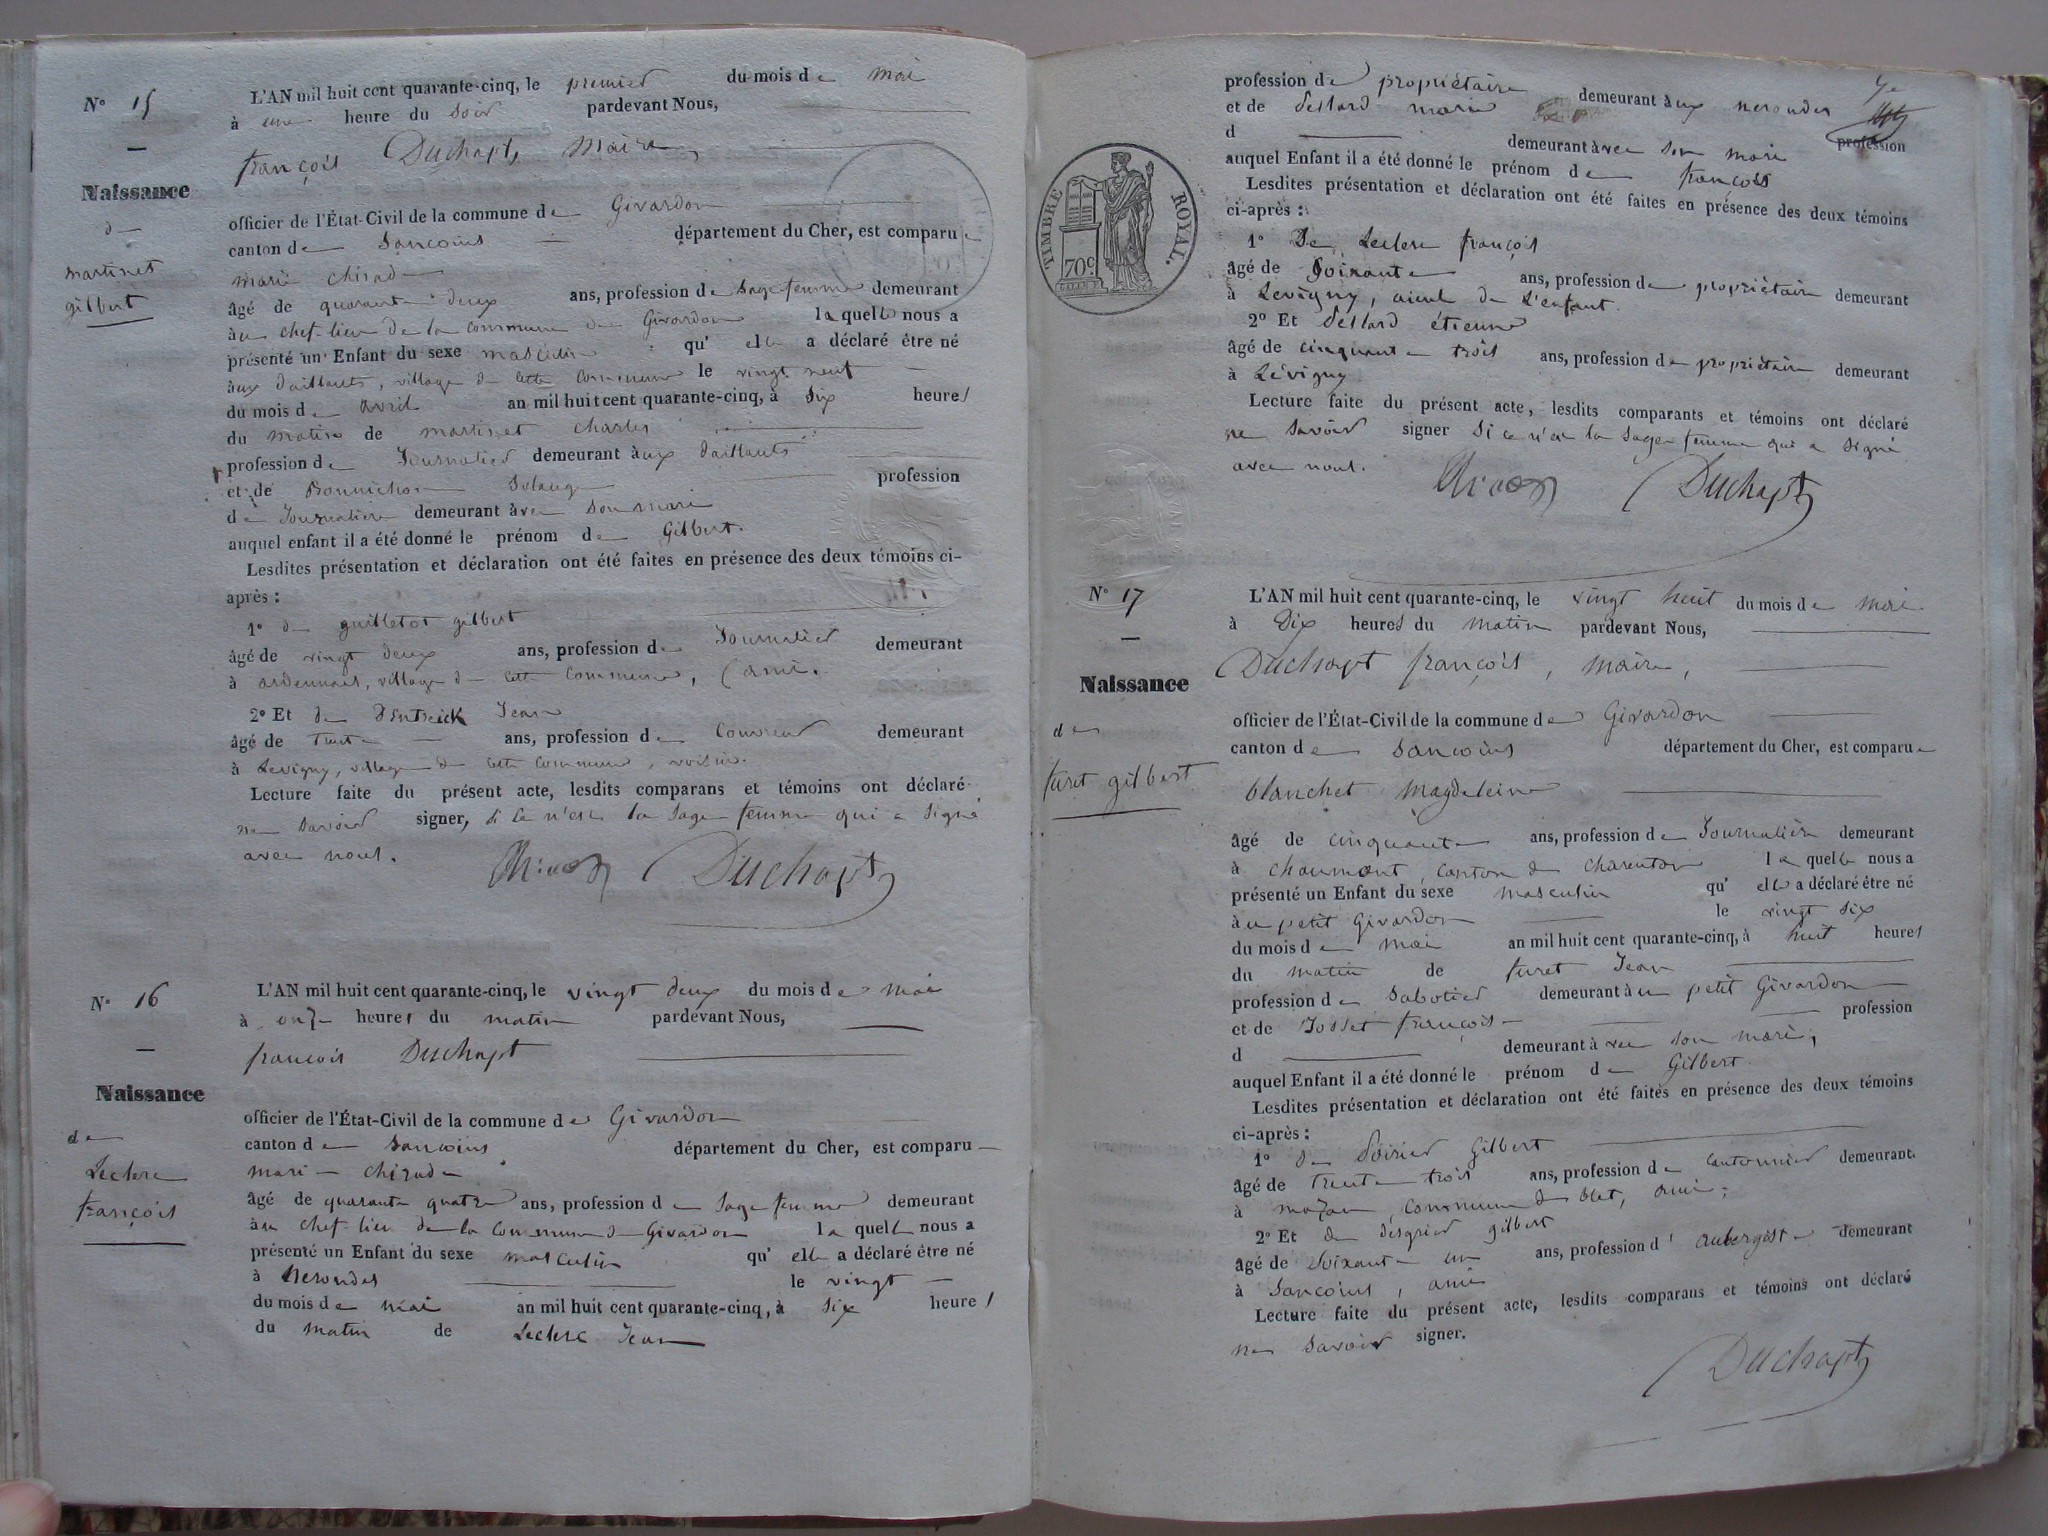 N° 15
Naissance
d
martinet
gilbert
L'AN mil huit cent quarante-cinq, le premier du mois de mai
à une heure du soir pardevant Nous,
françois Duchapt, Maire,
officier de l'État-Civil de la commune de Givardon
canton de Sancoins département du Cher, est comparue
marie chirade
âgé de quarante deux ans, profession de Sage femme demeurant
au chef-lieu de la commune de Givardon laquelle nous a
présenté un Enfant du sexe masculin qu'elle a déclaré être né
aux daillants, village de cette commune le vingt neuf
du mois de avril an mil huit cent quarante-cinq, à six heures
du matin de martinet charles
profession de Journalier demeurant aux daillants
et de Bonnichon Solange profession
de Journalière demeurant avec son mari
auquel enfant il a été donné le prénom de Gilbert.
Lesdites présentation et déclaration ont été faites en présence des deux témoins ci-
après :
1° de guilletot gilbert
âgé de vingt deux ans, profession de Journalier demeurant
à ardennais, village de cette commune, (ami.
2° Et de Jean
âgé de trente ans, profession de Couvreur demeurant
à Levigny, village de cette commune, voisin.
Lecture faite du présent acte, lesdits comparans et témoins ont déclaré
ne savoir signer, si ce n'est la sage femme qui a signé
avec nous.
Duchapt
N° 16
Naissance
de
Leclerc
françois
L'AN mil huit cent quarante-cinq, le vingt deux du mois de mai
à onze heures du matin pardevant Nous,
françois Duchapt
officier de l'État-Civil de la commune de Givardon
canton de Sancoins département du Cher, est comparu
marie chirade
âgé de quarante quatre ans, profession de Sage femme demeurant
au chef-lieu de la commune de Givardon laquelle nous a
présenté un Enfant du sexe masculin qu'elle a déclaré être né
à Nerondes le vingt
du mois de mai an mil huit cent quarante-cinq, à six heures
du matin de Leclerc Jean
profession de propriétaire demeurant aux nerondes
et de dellard marie profession
d demeurant avec son mari
auquel Enfant il a été donné le prénom de françois
Lesdites présentation et déclaration ont été faites en présence des deux témoins
ci-après :
1° De Leclerc françois
âgé de Soixante ans, profession de propriétaire demeurant
à Levigny, aieul de l'enfant
2° Et dellard étienne
âgé de cinquante trois ans, profession de propriétaire demeurant
à Lévigny
Lecture faite du présent acte, lesdits comparants et témoins ont déclaré
ne savoir signer si ce n'est la sage femme qui a signé
avec nous.
Duchapt
TIMBRE ROYAL.
70c
N° 17
Naissance
de
furet gilbert
L'AN mil huit cent quarante-cinq, le vingt huit du mois de mai
à Dix heures du matin pardevant Nous,
Duchapt françois, maire,
officier de l'État-Civil de la commune de Givardon
canton de Sancoins département du Cher, est comparue
blanchet Magdeleine
âgé de cinquante ans, profession de Journalière demeurant
à chaumont, canton de charenton laquelle nous a
présenté un Enfant du sexe masculin qu'elle a déclaré être né
au petit Givardon le vingt six
du mois de mai an mil huit cent quarante-cinq, à huit heures
du matin de furet Jean
profession de Sabotier demeurant au petit Givardon
et de françois profession
d demeurant avec son mari,
auquel Enfant il a été donné le prénom de Gilbert.
Lesdites présentation et déclaration ont été faites en présence des deux témoins
ci-après :
1° de Poirier Gilbert
âgé de trente trois ans, profession de Cantonnier demeurant
à commune de blet, ami;
2° Et de gilbert
âgé de Soixante un ans, profession d'aubergiste demeurant
à Sancoins, ami
Lecture faite du présent acte, lesdits comparans et témoins ont déclaré
ne savoir signer.
Duchapt